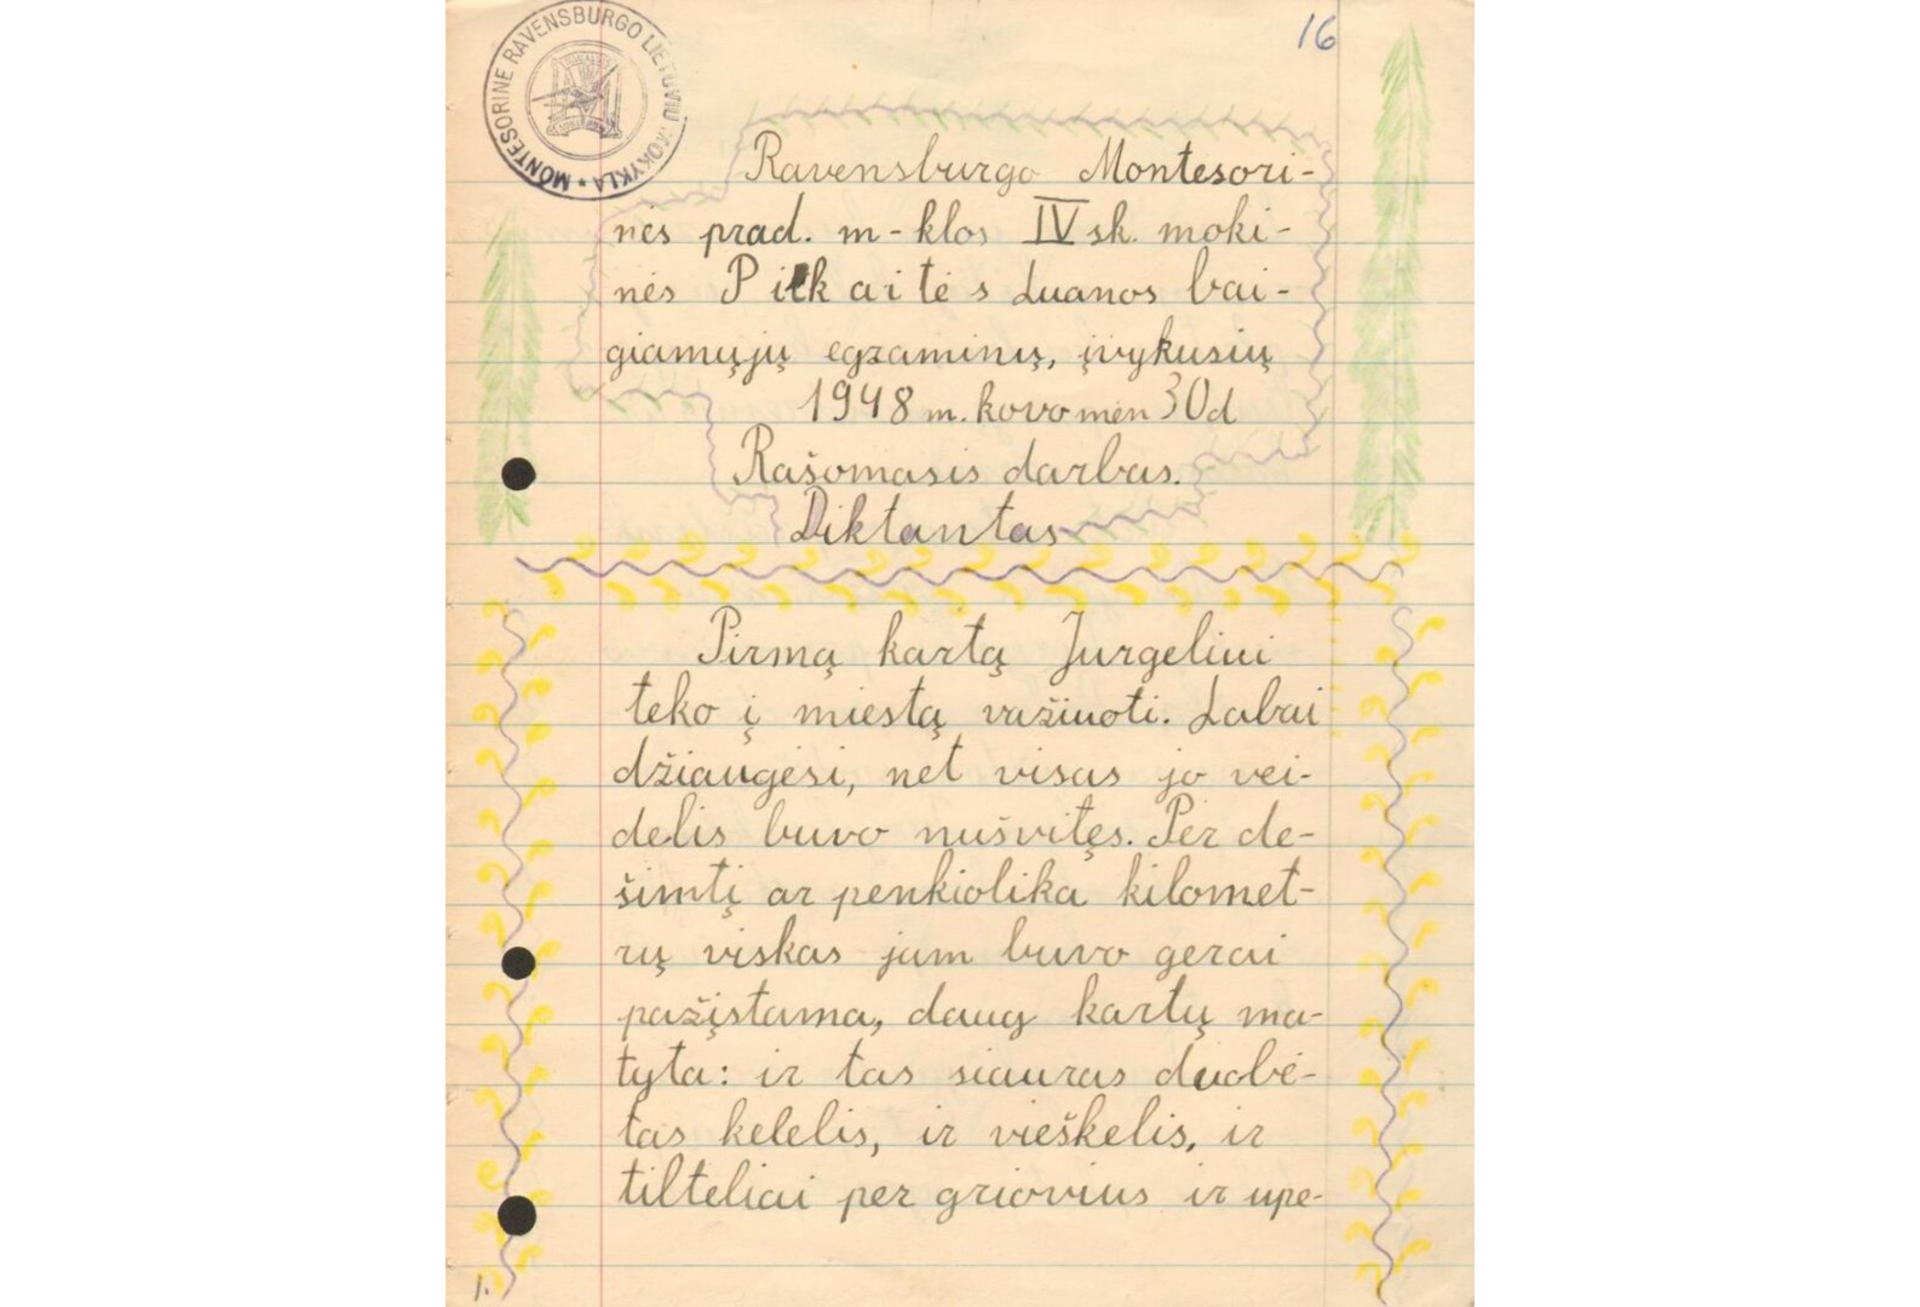 MONTESORINE RAVENSBURGO LIETUVIU MOKYKLA
16
Ravensburgo Montesori-
nės prad. m-klos IV sk. moki-
nės Pilkaitės Luanos bai-
giamųjų egzaminų, įvykusių
1948 m. kovo mėn 30 d
Rašomasis darbas.
Diktantas
Pirmą kartą Jurgeliui
teko į miestą važiuoti. Labai
džiaugėsi, net visas jo vei-
delis buvo nušvitęs. Per de-
šimtį ar penkiolika kilomet-
rų viskas jam buvo gerai
pažįstama, daug kartų ma-
tyta: ir tas siauras duobė-
tas kelelis, ir vieškelis, ir
tilteliai per griovius ir upe-
1.